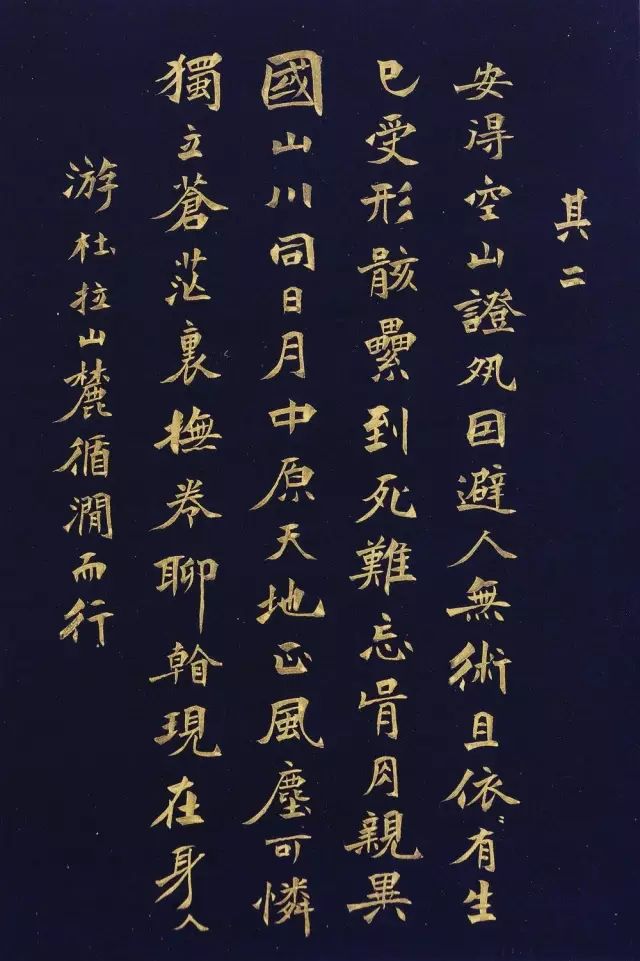 其二
安得空山證夙囙避人無術且依〻有生
已受形骸纍到死難忘骨肉親異
國山川同日月中原天地正風塵可憐
獨立蒼茫裏撫卷聊翰現在身
游杜拉山麓循澗而行